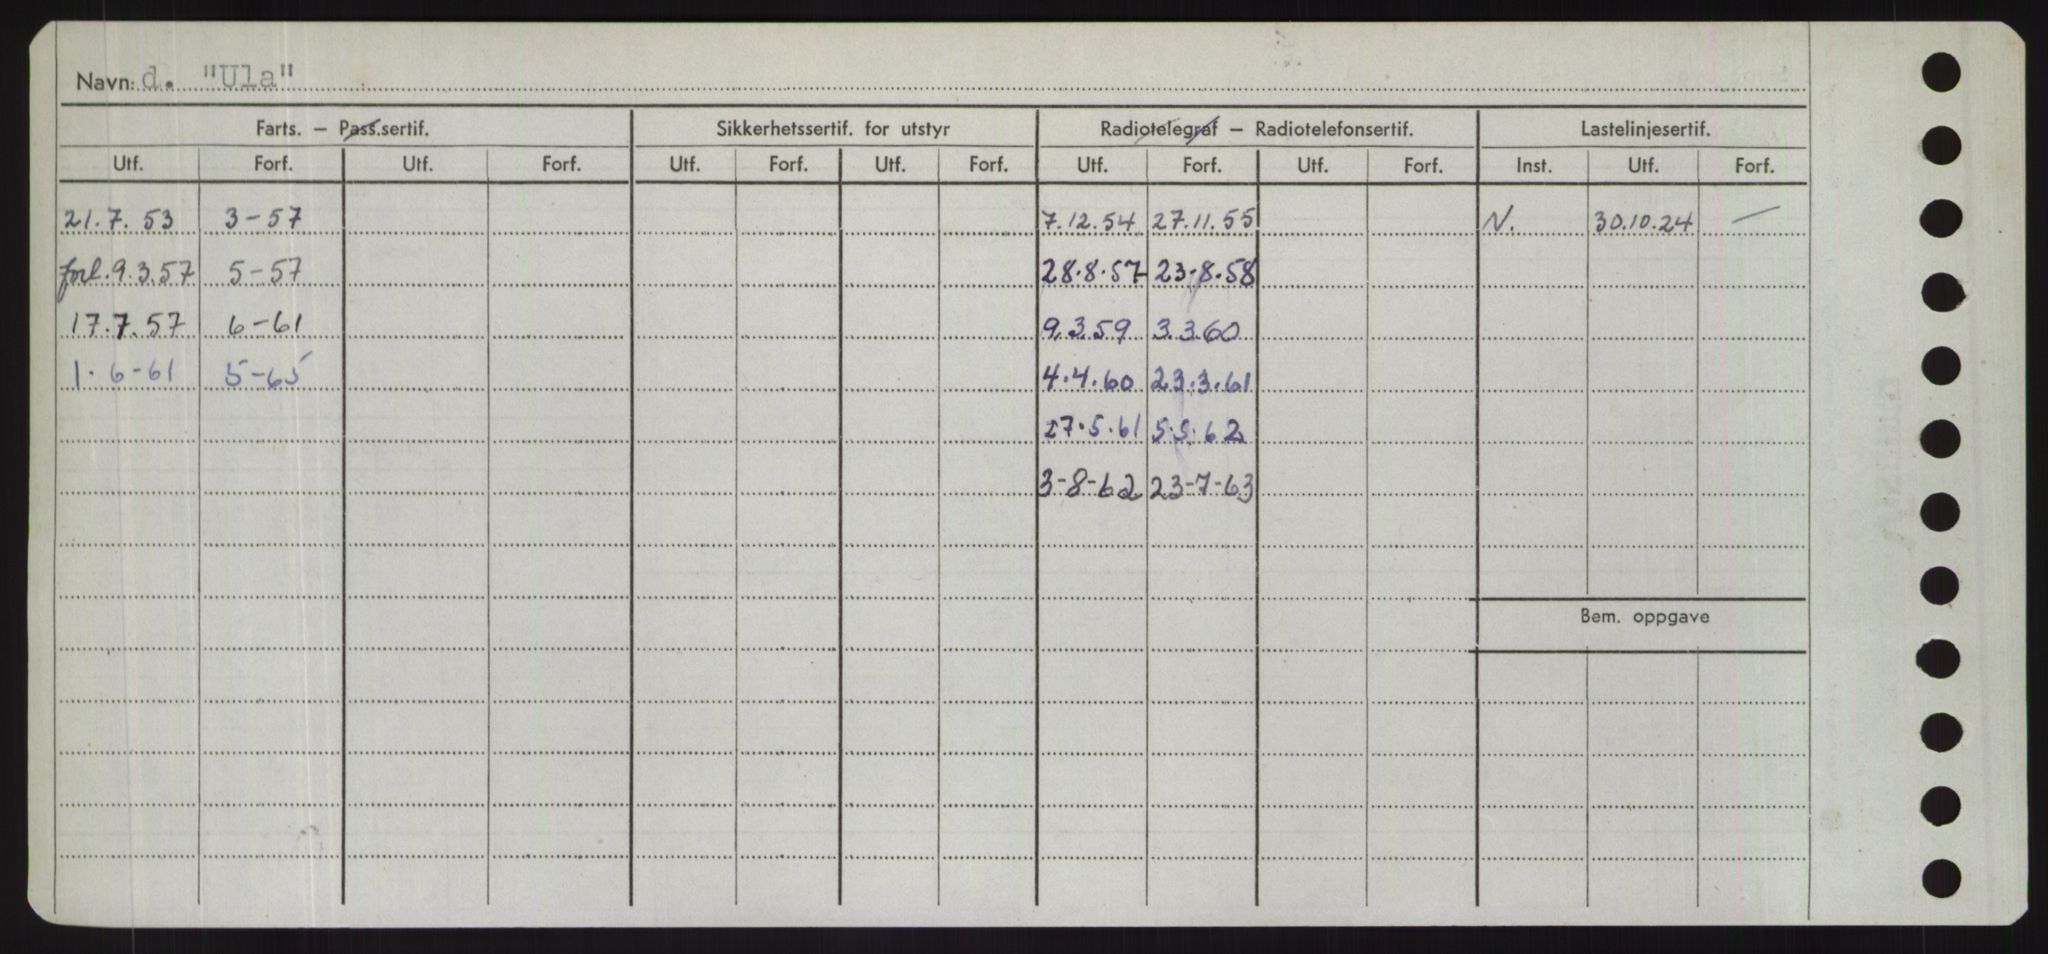 Navn: d. "Ula"
Farts. – Pass.sertif. Sikkerhetssertif. for utstyr Radiotelegraf – Radiotelefonsertif. Lastelinjesertif.
Utf. Forf. Utf. Forf. Utf. Forf. Utf. Forf. Utf. Forf. Utf. Forf. Inst. Utf. Forf.
21.7.53 3-57 7.12.54 27.11.55 N. 30.10.24 —
forl.9.3.57 5-57 28.8.57 23.8.58
17.7.57 6-61 9.3.59 3.3.60
1.6-61 5-65 4.4.60 23.3.61
27.5.61 5.5.62
3-8-62 23-7-63
Bem. oppgave